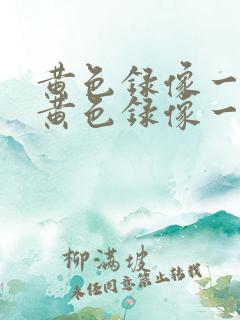 黄色録像一
黄色録像一
柳满坡
未经同意禁止转载